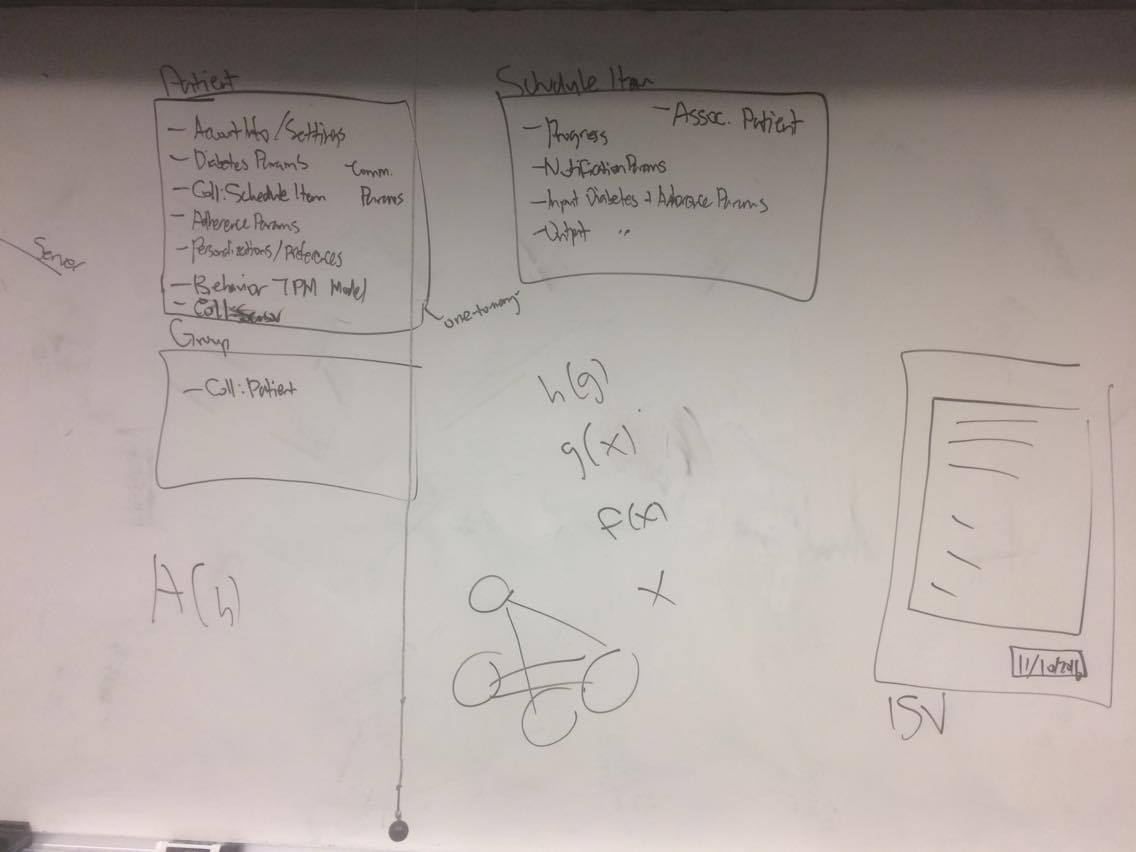 Patient
- Account Info/Settings
- Diabetes Params
- Comm. Params
- Coll: Schedule Item
- Adherence Params
- Personalizations/Preferences
- Behavior TPM Model
- Coll: Sensor
one-to-many
Server
Group
- Coll: Patient
A(h)
Schedule Item
- Assoc. Patient
- Progress
- Notification Params
- Input Diabetes + Adherence Params
- Output "
h(g)
g(x)
f(x)
x
11/10/2016
ISV